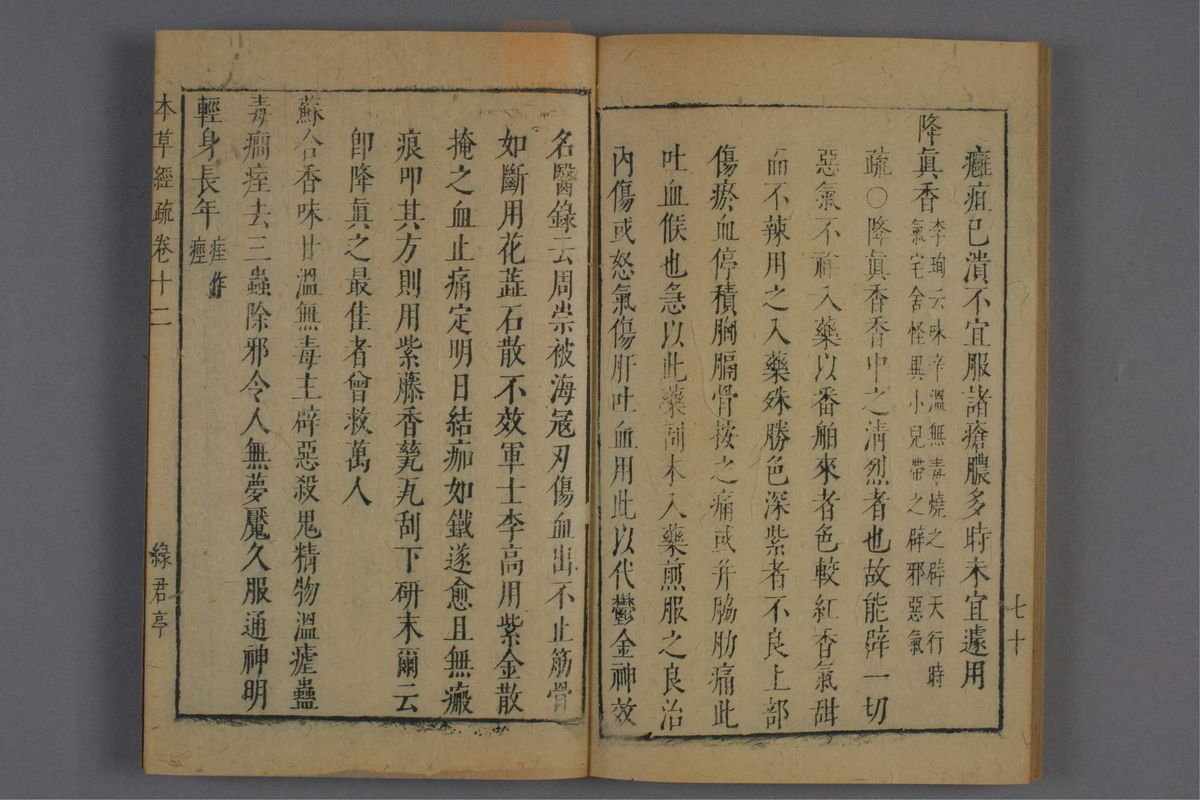 癰疽已潰不宜服諸瘡膿多時未宜遽用
降眞香李珣云味辛溫無毒燒之辟天行時
氣宅舍怪異小兒帶之辟邪惡氣
疏○降眞香香中之淸烈者也故能辟一切
惡氣不祥入藥以番舶來者色較紅香氣甜
而不辣用之入藥殊勝色深紫者不良上部
傷瘀血停積胸膈骨按之痛或幷脇肋痛此
吐血候也急以此藥刮末入藥煎服之良治
內傷或怒氣傷肝吐血用此以代鬱金神效
七十
名醫錄云周崇被海寇刃傷血出不止筋骨
如斷用花蕋石散不效軍士李高用紫金散
掩之血止痛定明日結痂如鐵遂愈且無瘢
痕叩其方則用紫藤香甆瓦刮下硏末爾云
卽降眞之最佳者曾救萬人
蘇合香味甘溫無毒主辟惡殺鬼精物溫瘧蠱
毒癇痓去三蟲除邪令人無夢魘久服通神明
輕身長年痓作
痙
本草經疏卷十二
綠君亭